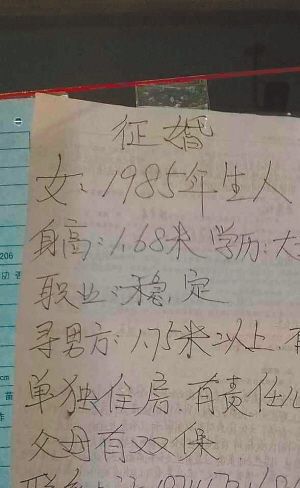 征婚
女：1985年生人
身高：1.68米 学历：大
职业：稳定
寻男方：1.75米以上.有
单独住房.有责任心
父母有双保
206
cm